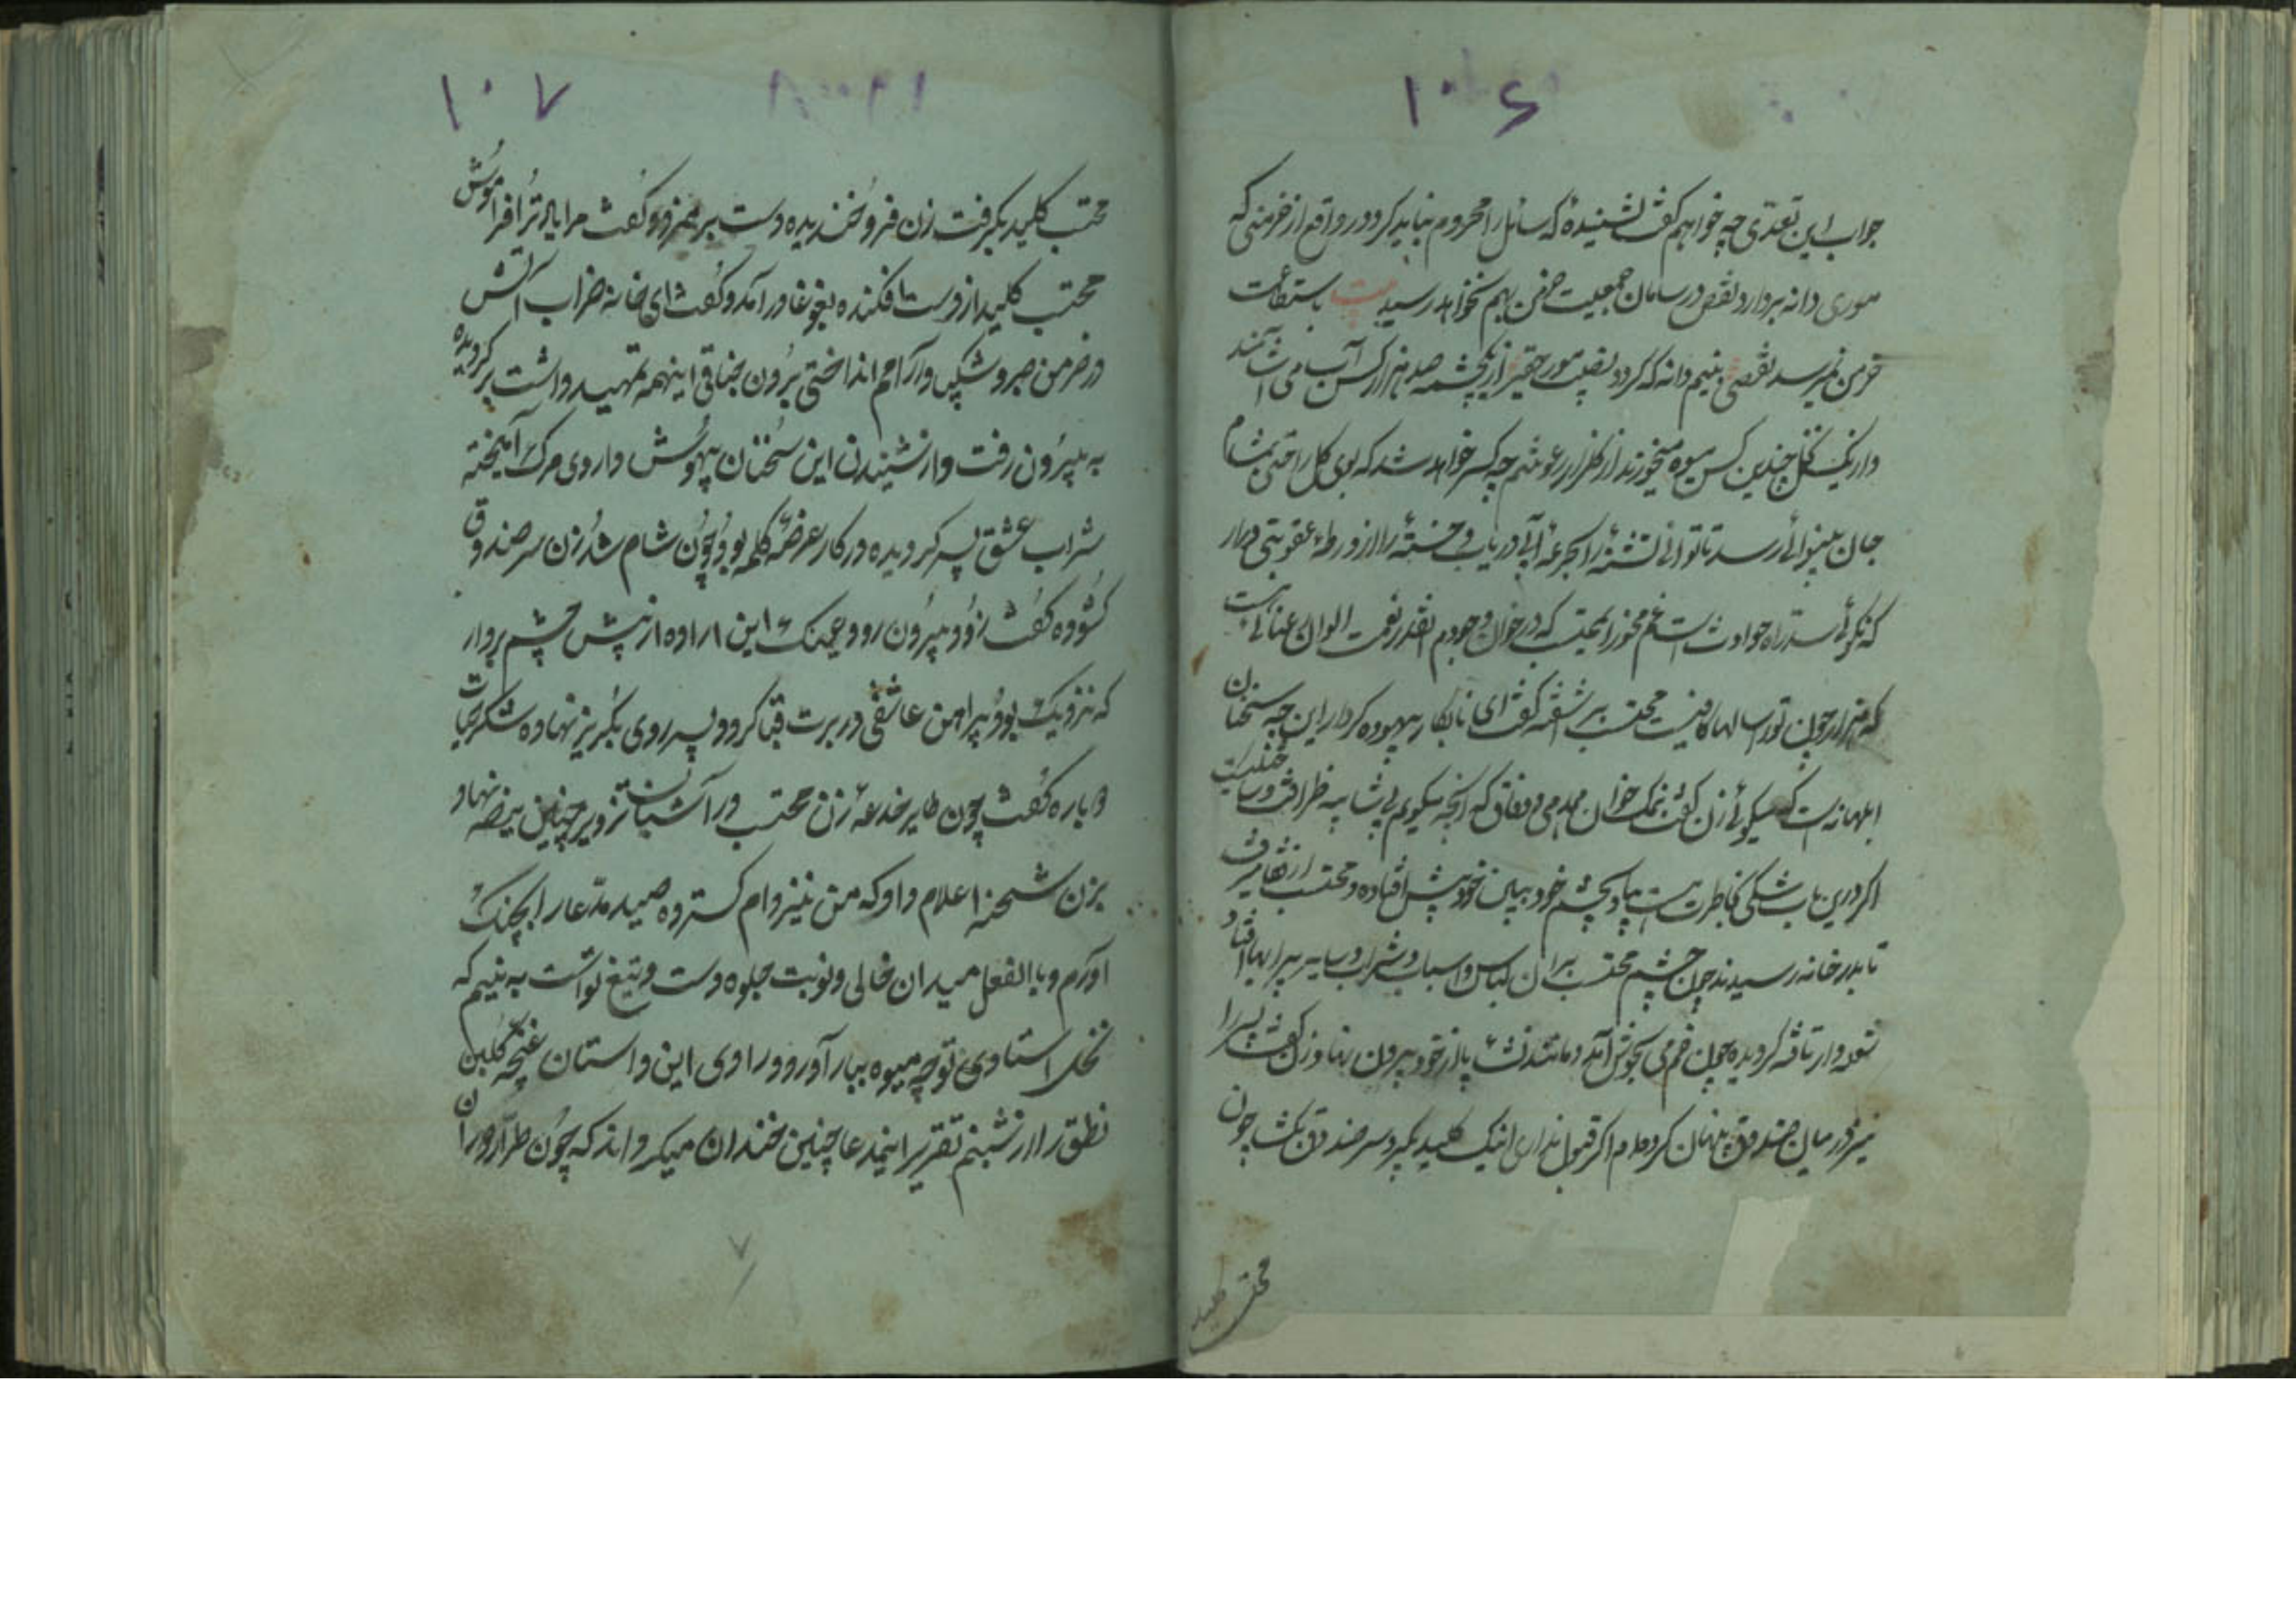 ۱۰۶
جواب این تعدّی چه خواهم گفت نشنیدهٔ که سائل را محروم نباید کرد و در واقع از خرمنی که
موری دانه بردارد نقص در سامان جمعیت خرمن بهم نخواهد رسید بیت باستطاعت
خرمن نمیرسد نقصی ز نیم دانه که گردد نصیب مور حقیر از یکچشمه صد هزار کس آب می آشامند
و از یک نخل چندین کس میوه میخورند از گلزار رعونتم چه کسر خواهد شد که بوی گل راحتی بمشام
جان بینوائی رسد تا توانی تشنهٔ را بجرعهٔ آبی دریاب و خستهٔ را از ورطهٔ عقوبتی برآر
که نکوئی سد راه حوادث است غم مخور ای محتسب که در خوان وجودم آنقدر نعمت الوان عنائی است
که هزار چون تو را سالها کافیست محتسب برآشفته گفت ای نابکار بیهوده کردار این چه سخنان
ابلهانه است که میگوئی زن گفت بنمک خوان همدمی و وفاق که آنچه میگویم بی شایبه ظرافت و رسایت
اگر درین باب شکی بخاطرت هست بیا و بچشم خود ببین خود پیش افتاده و محتسب از قفا میرفت
تا بدر خانه رسیدند چون چشم محتسب بر آن لباس و اسباب و شراب و سایر سر براهها افتاد
شعله وار تافته گردیده چون خم می بجوش آمد و مانند نشئه پا از خود بیرون نهاد زن گفت پسر را
نیز در میان صندوق پنهان کرده‌ام اگر قبول نداری اینک کلید بگیر و سر صندوق بگشا چون
محتسب کلید
۱۰۷
محتسب کلید بگرفت زن فرو خندیده دست بر هم زد و گفت مرا یاد ترا فراموش
محتسب کلید از دست افکنده بغوغا درآمد و گفت ای خانه خراب آتش
در خرمن صبر و شکیب و آرامم انداختی بردن جناق اینهمه تمهید داشت برگردیده
به بیرون رفت و از شنیدن این سخنان بیهوش داروی مرگ آمیخته
شراب عشق پسر گردیده در کار عرضهٔ کلمه بود چون شام شد زن سر صندوق
گشوده گفت زود بیرون رو و عینک این اراده از پیش چشم بردار
که نزدیک بود پیراهن عاشقی در برت قبا گردد پسر روی بگریز نهاده شکر حیات
دوباره گفت چون طایر خدعهٔ زن محتسب در آشیانه تزویر چنین بیضه نهاد
بزن شحنه اعلام داد که من نیز دام گسترده صید مدّعا را بچنگ
آورم و بالفعل میدان خالی و نوبت جلوه دست و تیغ تو است به بینیم که
نخل استادی تو چه میوه ببار آورد و راوی این داستان غنچه گلبن
نطق را از شبنم تقریر این مدعا چنین خندان میگرداند که چون طرّار دوران